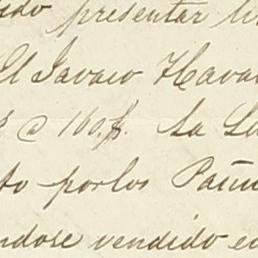 ido presentar
El Tavaco Hava
@ 160 f. La
to porlos Pañu
ndose vendido e